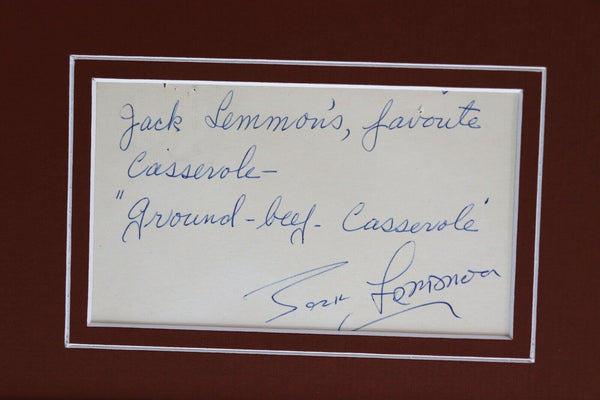 Jack Lemmon's, favorite
Casserole-
"Ground-beef-Casserole"
Jack Lemmon